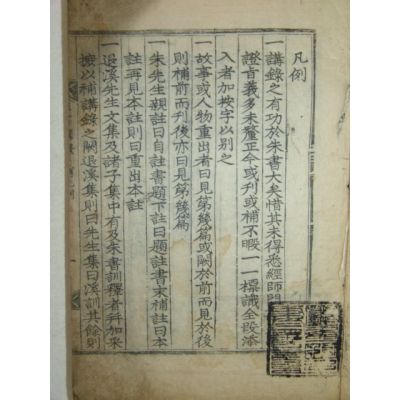 凡例
一講錄之有功於朱書大矣惜其未得悉經師門
證旨義多未釐正今或刊或補不暇一一標識全段添
入者加按字以别之
一故事或人物重出者曰見第幾篇或闕於前而見於後
則補前而刊後亦曰見第幾篇
一朱先生親註曰自註書題下註曰題註書末補註曰本
註再見本註則曰重出本註
一退溪先生文集及諸子集中有及朱書訓釋者幷加采
按以補講錄之闕退溪集則曰先生集曰溪訓其餘則